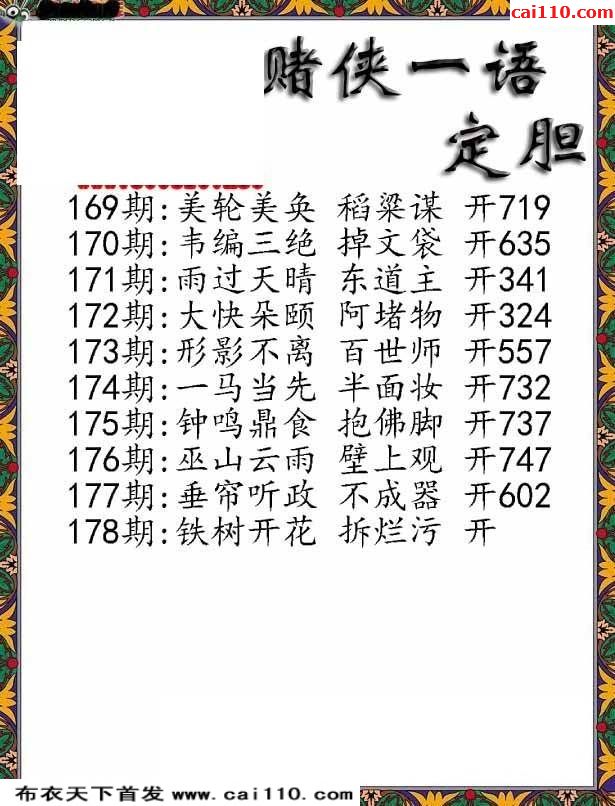 cai110.com
赌侠一语
定胆
169期:美轮美奂 稻粱谋 开719
170期:韦编三绝 掉文袋 开635
171期:雨过天晴 东道主 开341
172期:大快朵颐 阿堵物 开324
173期:形影不离 百世师 开557
174期:一马当先 半面妆 开732
175期:钟鸣鼎食 抱佛脚 开737
176期:巫山云雨 壁上观 开747
177期:垂帘听政 不成器 开602
178期:铁树开花 拆烂污 开
布衣天下首发 www.cai110.com